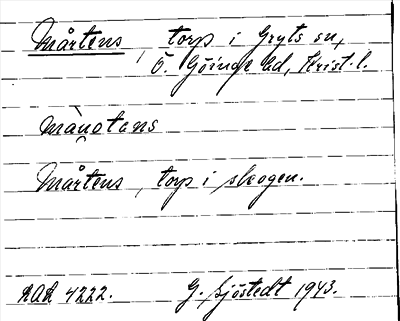 Mårtens, torp i Gryts sn,
Ö. Göinge hd, Krist. l.
mȧ̀notans
Mårtens, torp i skogen.
KAR 4222. G. Sjöstedt 1943.